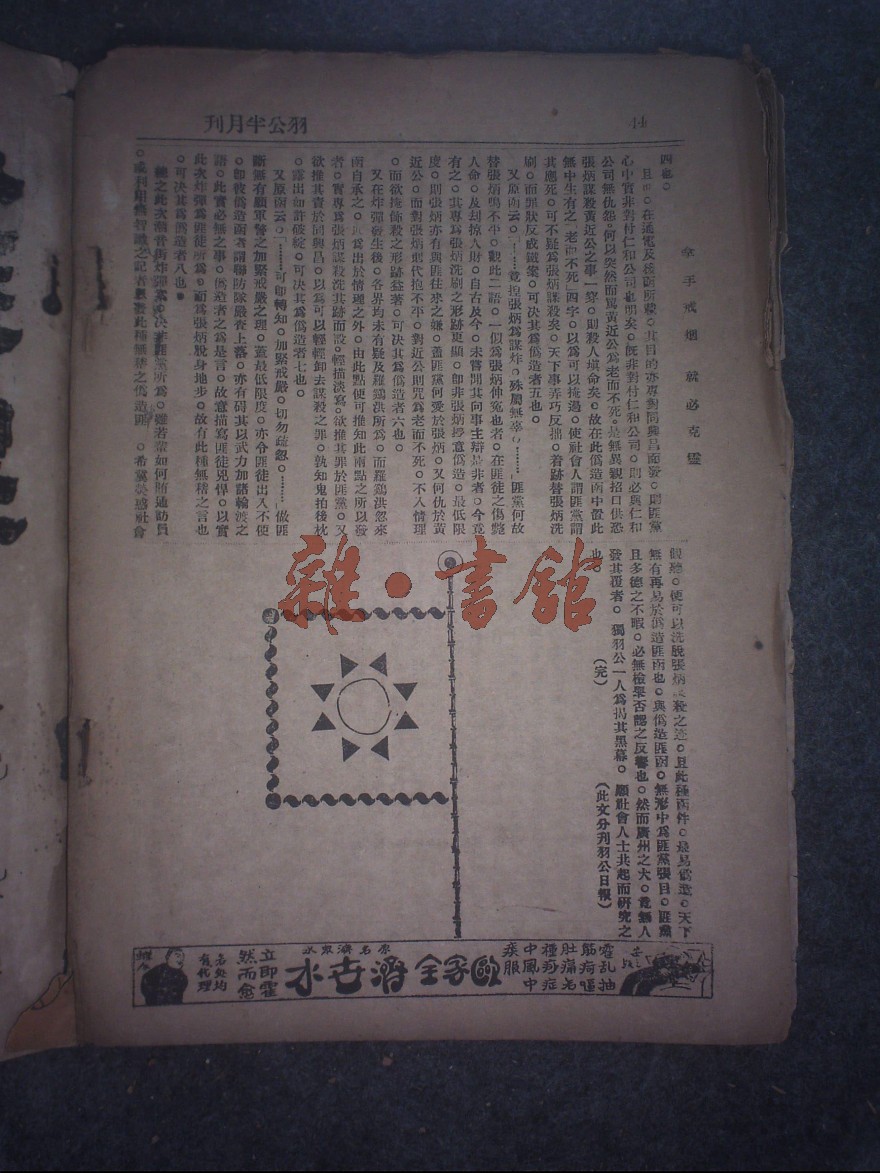 羽公半月刊
14
拿手戒烟就必克靈
四也。
且 。在通電及核函所稱。其目的亦專對同興昌而發。則匪黨
心中實非對付仁和公司也明矣。既非對付仁和公司。則必與仁和
公司無仇怨。何以突然而罵黃近公為老而不死。是無異親招口供恐
張炳謀殺黃近公之事一穿。則殺人塡命矣。故在此僞造函中置此
無中生有之「老而不死」四字。以為可以掩過。使社會人謂匪黨謂
其應死。可不疑為張炳謀殺矣。天下事弄巧反拙。着跡替張炳洗
刷。而罪狀反成鐵案。可决其為僞造者五也。
又原函云。「……竟捏張炳為謀炸。殊屬無辜。……」匪黨何故
替張炳鳴不平。觀此二語。一似為張炳伸冤也者。在匪徒之傷斃
人命。及刦掠人財。自古及今。未嘗聞其向事主辯是非者。今竟
有之。其專為張炳洗刷之形跡更顯。即非張炳授意僞造。最低限
度。則張炳亦有與匪往來之嫌。蓋匪黨何愛於張炳。又何仇於黃
近公。而對張炳則代抱不平。對近公則咒為老而不死。不入情理
。而欲掩飾殺之形跡益著。可决其為僞造者六也。
又在炸彈發生後。各界均未有疑及羅鷄洪所為。而羅鷄洪忽來
函自承之。此為出於情理之外。由此點便可推知此兩點之所以發
者。實專為張炳謀殺洗其跡而設。輕描淡寫。欲推其罪於匪黨。又
欲推其責於同興昌。以為可以輕輕卸去謀殺之罪。孰知鬼拍後枕
。露出如許破綻。可决其為僞造者七也。
又原函云。「……可卽轉知。加緊戒嚴。切勿疏忽。……」做匪
斷無有顧軍警之加緊戒嚴之理。蓋最低限度。亦令匪徒出入不使
。卽彼僞造函者謂聯防隊嚴查上落。亦有碍其以武力加諸輪渡之
語。此實必無之事。僞造者之為是言。故意描寫匪徒兇悍。以實
此次炸彈為匪徒所為。而為張炳脫身地步。故有此種無稽之言也
。可决其為僞造者八也。
總之此次瀚晋再炸彈案。决非匪黨所為。雖若輩如何賄通訪員
。或利用無智識之記者 此種無稽之僞造匪 。希冀熒惑社會
觀聽。便可以洗脫張炳謀殺之迹。且此種函件。最易僞造。天下
無有再易於僞造匪函也。與僞造匪函。無形中為匪黨張目。匪黨
且多德之不暇。必無檢舉否認之反響也。然而廣州之大。竟無人
發其覆者。獨羽公一人為揭其黑幕。願社會人士共起而硏究之
也。
(完)
(此文分刊羽公日報)
霍亂抽
筋痧嘔
肚痛各
種痧症
中風中
疾服
歐家全濟世水
原名濟眾水
立即霍
然而愈
各處均
有代理
雜·書館